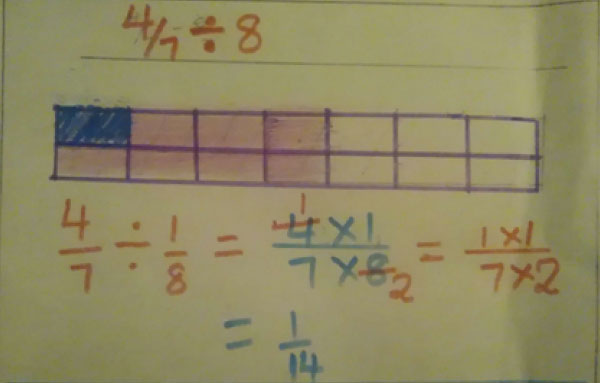 4/7 ÷ 8
4/7 ÷ 1/8 = 4 1 × 1 / 7 × 8 2 = 1×1 / 7×2
= 1/14